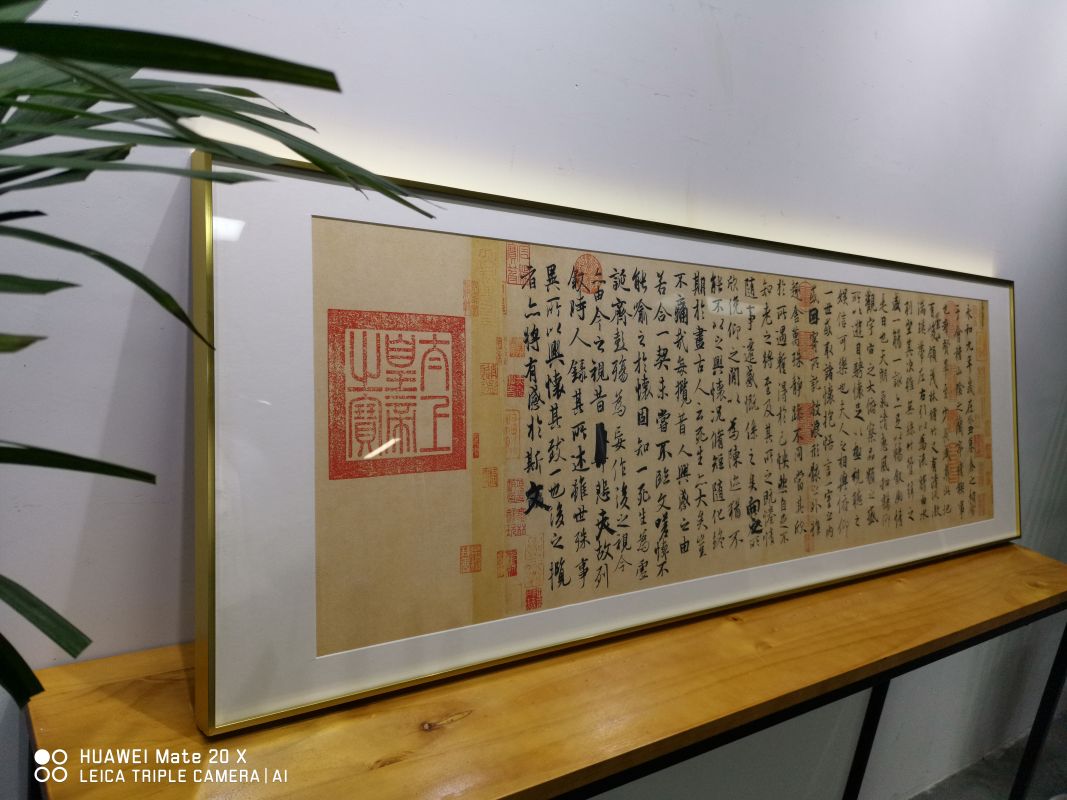 永和九年歲在癸丑暮春之初會
于會稽山陰之蘭亭脩禊事
也羣賢畢至少長咸集此地
有崇山峻領茂林脩竹又有清流激
湍暎帶左右引以為流觴曲水
列坐其次雖無絲竹管弦之
盛一觴一詠亦足以暢敘幽情
是日也天朗氣清惠風和暢仰
觀宇宙之大俯察品類之盛
所以遊目騁懷足以極視聽之
娛信可樂也夫人之相與俯仰
一世或取諸懷抱悟言一室之內
或因寄所託放浪形骸之外雖
趣舍萬殊靜躁不同當其欣
於所遇蹔得於己怏然自足不
知老之將至及其所之既惓情
隨事遷感慨係之矣向之所
欣俛仰之閒以為陳迹猶不
能不以之興懷況脩短隨化終
期於盡古人云死生亦大矣豈
不痛哉每攬昔人興感之由
若合一契未嘗不臨文嗟悼不
能喻之於懷固知一死生為虛
誕齊彭殤為妄作後之視今
亦由今之視昔悲夫故列
敘時人錄其所述雖世殊事
異所以興懷其致一也後之攬
者亦將有感於斯文
太上皇帝之寶
HUAWEI Mate 20 X
LEICA TRIPLE CAMERA | AI